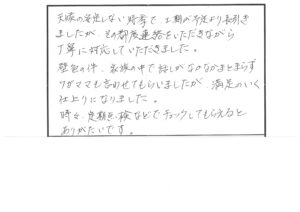 天候の安定しない時季で、工期が予定より長引き
ましたが、その都度連絡をいただきながら
丁寧に対応していただきました。
壁色の件、家族の中で話しがなかなかまとまらず
ワガママも言わせてもらいましたが、満足のいく
仕上りになりました。
時々、定期点検などでチェックしてもらえると
ありがたいです。